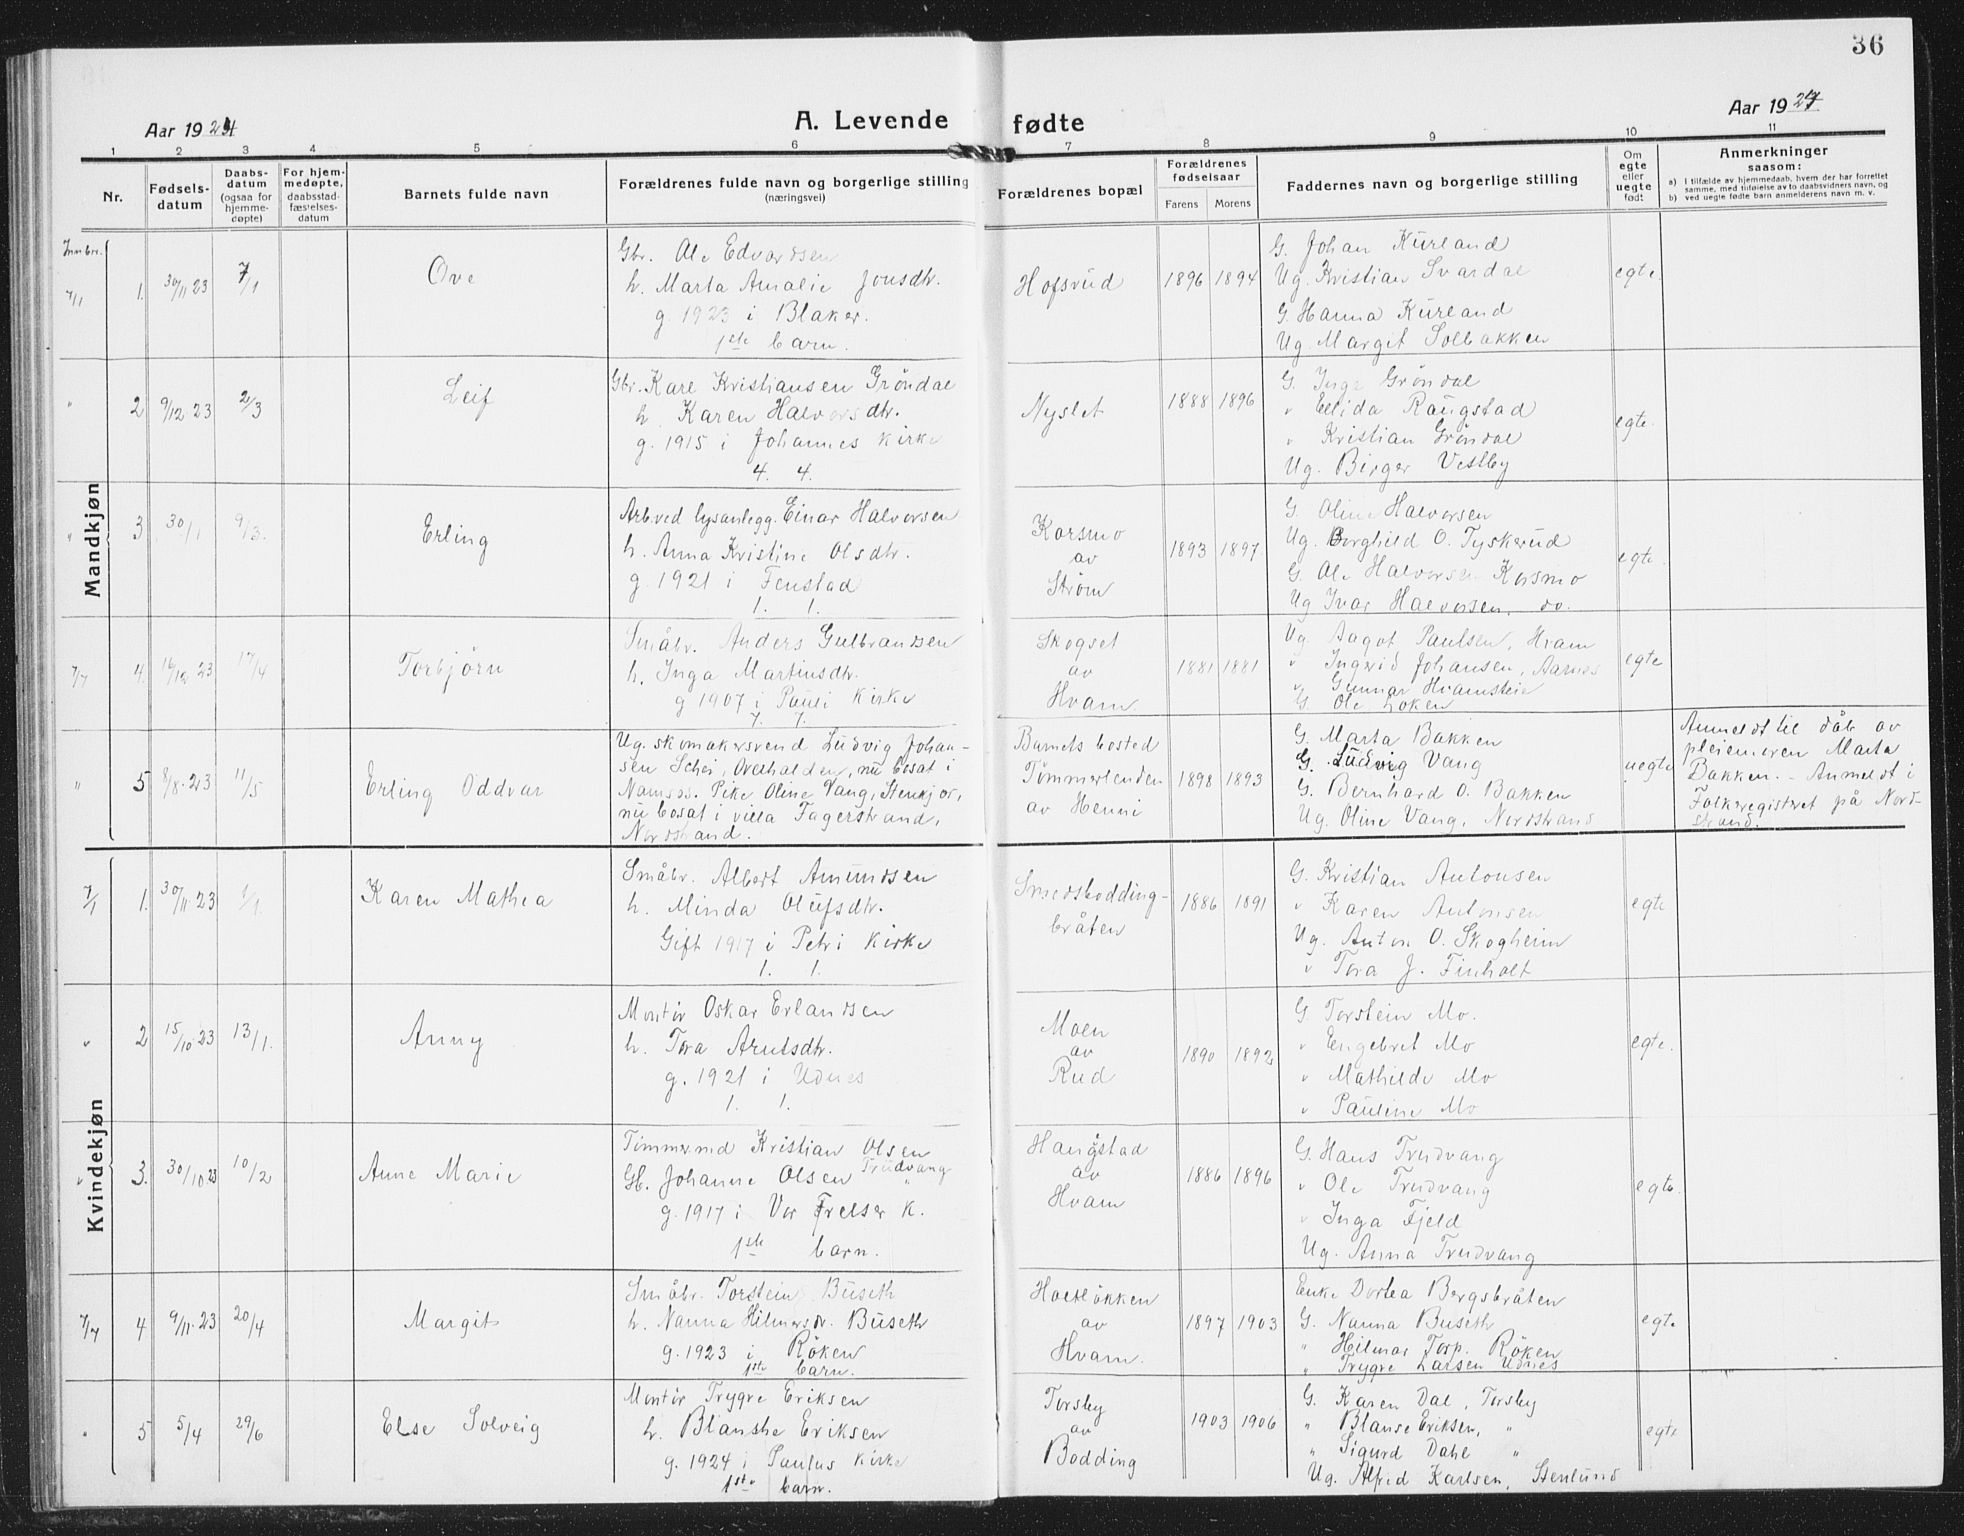 36
Aar 1924
A. Levende fødte
Aar 1924
1 2 3 4 5 6 7 8 9 10 11
Nr.
Fødsels-
datum
Daabs-
datum
(ogsaa for
hjemme-
døpte)
For hjem-
medøpte,
daabsstad-
fæstelses-
datum
Barnets fulde navn
Forældrenes fulde navn og borgerlige stilling
(næringsvei)
Forældrenes bopæl
Forældrenes
fødselsaar
Farens Morens
Faddernes navn og borgerlige stilling
Om
egte
eller
uegte
født
Anmerkninger
saasom:
a) I tilfælde av hjemmedaab, hvem der har forrettet
samme, med tilføielse av to daabsvidners navn, og
b) ved uegte fødte barn anmelderens navn m. v.
Mandkjøn
Innber.
7/1 1. 30/11 23 7/1
Ove
Gbr. Ole Edvardsen
h. Marta Amalie Jonsdtr.
g. 1923 i Blaker.
1ste barn.
Hofsrud
1896 1894
G. Johan Kurland
Ug. Kristian Svardal
G. Hanna Kurland
Ug. Margit Solbakken
egte
" 2 9/12 23 2/3
Leif
Gbr. Kare Kristiansen Grøndal
h. Karen Halvorsdtr.
g. 1915 i Johannes kirke
4. 4.
Nyslet
1888 1896
G. Inga Grøndal
" Elida Raugstad
" Kristian Grøndal
Ug. Birger Vestby
egte.
" 3 30/1 9/3.
Erling
Arb. ved lysanlegg. Einar Halvorsen
h. Anna Kristine Olsdtr.
g. 1921 i Fenstad
1. 1.
Korsmo
av
Strøm
1893 1897
G. Oline Halvorsen
Ug. Borghild O. Tyskerud
G. Ole Halvorsen Korsmo
Ug Ivar Halvorsen, do.
egte.
7/7 4. 16/12 23 17/4
Torbjørn
Småbr. Anders Gulbrandsen
h. Inga Martinsdtr.
g 1907 i Pauli Kirke
7. 7.
Skogset
av
Hvam.
1881 1881
Ug. Aagot Paulsen, Hvam
" Ingrid Johansen, Aarnes
" Gunnar Hvamsteie
G. Ole Løken
egte
" 5 8/8.23 11/5
Erling Oddvar
Ug. skomakersvend Ludvig Johan-
sen Schei, Overhalden, nu bosat i
Namsos. Pike Oline Vang, Stenkjør,
nu bosat i villa Fagerstrand,
Nordstrand.
Barnets bosted
Tømmerlenden
av Henni
1898 1893
G. Marta Bakken
G. Ludvig Vang
G. Bernhard O. Bakken
Ug. Oline Vang, Nordstrand
uegte
Anmeldt til dåb av
pleiemoren Marta
Bakken. - Anmeldt i
Folkeregistret på Nord-
strand.
Kvindekjøn
7/1 1. 30/11 23 1/1.
Karen Mathea
Småbr. Albert Amundsen
h. Minda Olufsdtr.
Gift 1917 i Petri Kirke
1. 1.
Smedsbodding-
bråten
1886 1891
G. Kristian Antonsen
" Karen Antonsen
Ug. Anton O. Skogheim
" Tora J. Finholt
egte
" 2 15/10 23 13/1.
Anny
Montør Oskar Erlandsen
h. Tora Arntsdtr.
g. 1921 i Udnes
1. 1.
Moen
av
Rud
1890 1892
G. Torstein Mo.
" Engebret Mo
" Mathilde Mo
" Pauline Mo
egte.
" 3. 30/10 23 10/2
Anne Marie
Tømmermd Kristian Olsen
Trudvang
Gb. Johanne Olsen "
g. 1917 i Vor Frelser K.
1ste barn.
Haugstad
av
Hvam
1886 1896
G. Hans Trudvang
" Ole Trudvang
" Inga Fjeld
Ug. Anna Trudvang
egte.
7/7 4 9/11.23 20/4
Margit
Småbr. Torstein Buseth
h. Nanna Hilmarsdr. Buseth
g. 1923 i Røken
1ste barn.
Holtløkken
av
Hvam.
1897 1903
Enke Dortea Bergsbråten
G. Nanna Buseth
" Hilmar Torp. Røken
" Trygve Larsen Udnes
egte
" 5 5/4 29/6
Else Solveig
Montør Trygve Eriksen
h. Blanshe Eriksen
g. 1924 i Paulus Kirke
1ste barn.
Torsby
av
Bodding
1903 1906
G. Karen Dal, Torsby
" Blanse Eriksen, "
" Sigurd Dahl "
Ug. Alfred Karlsen, Stenlund
egte